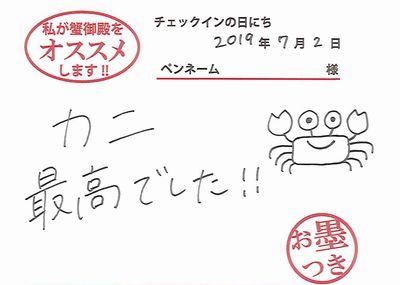 私が蟹御殿を
オススメ
します!!
チェックインの日にち
2019年7月2日
ペンネーム 様
カニ
最高でした!!
お墨
つき